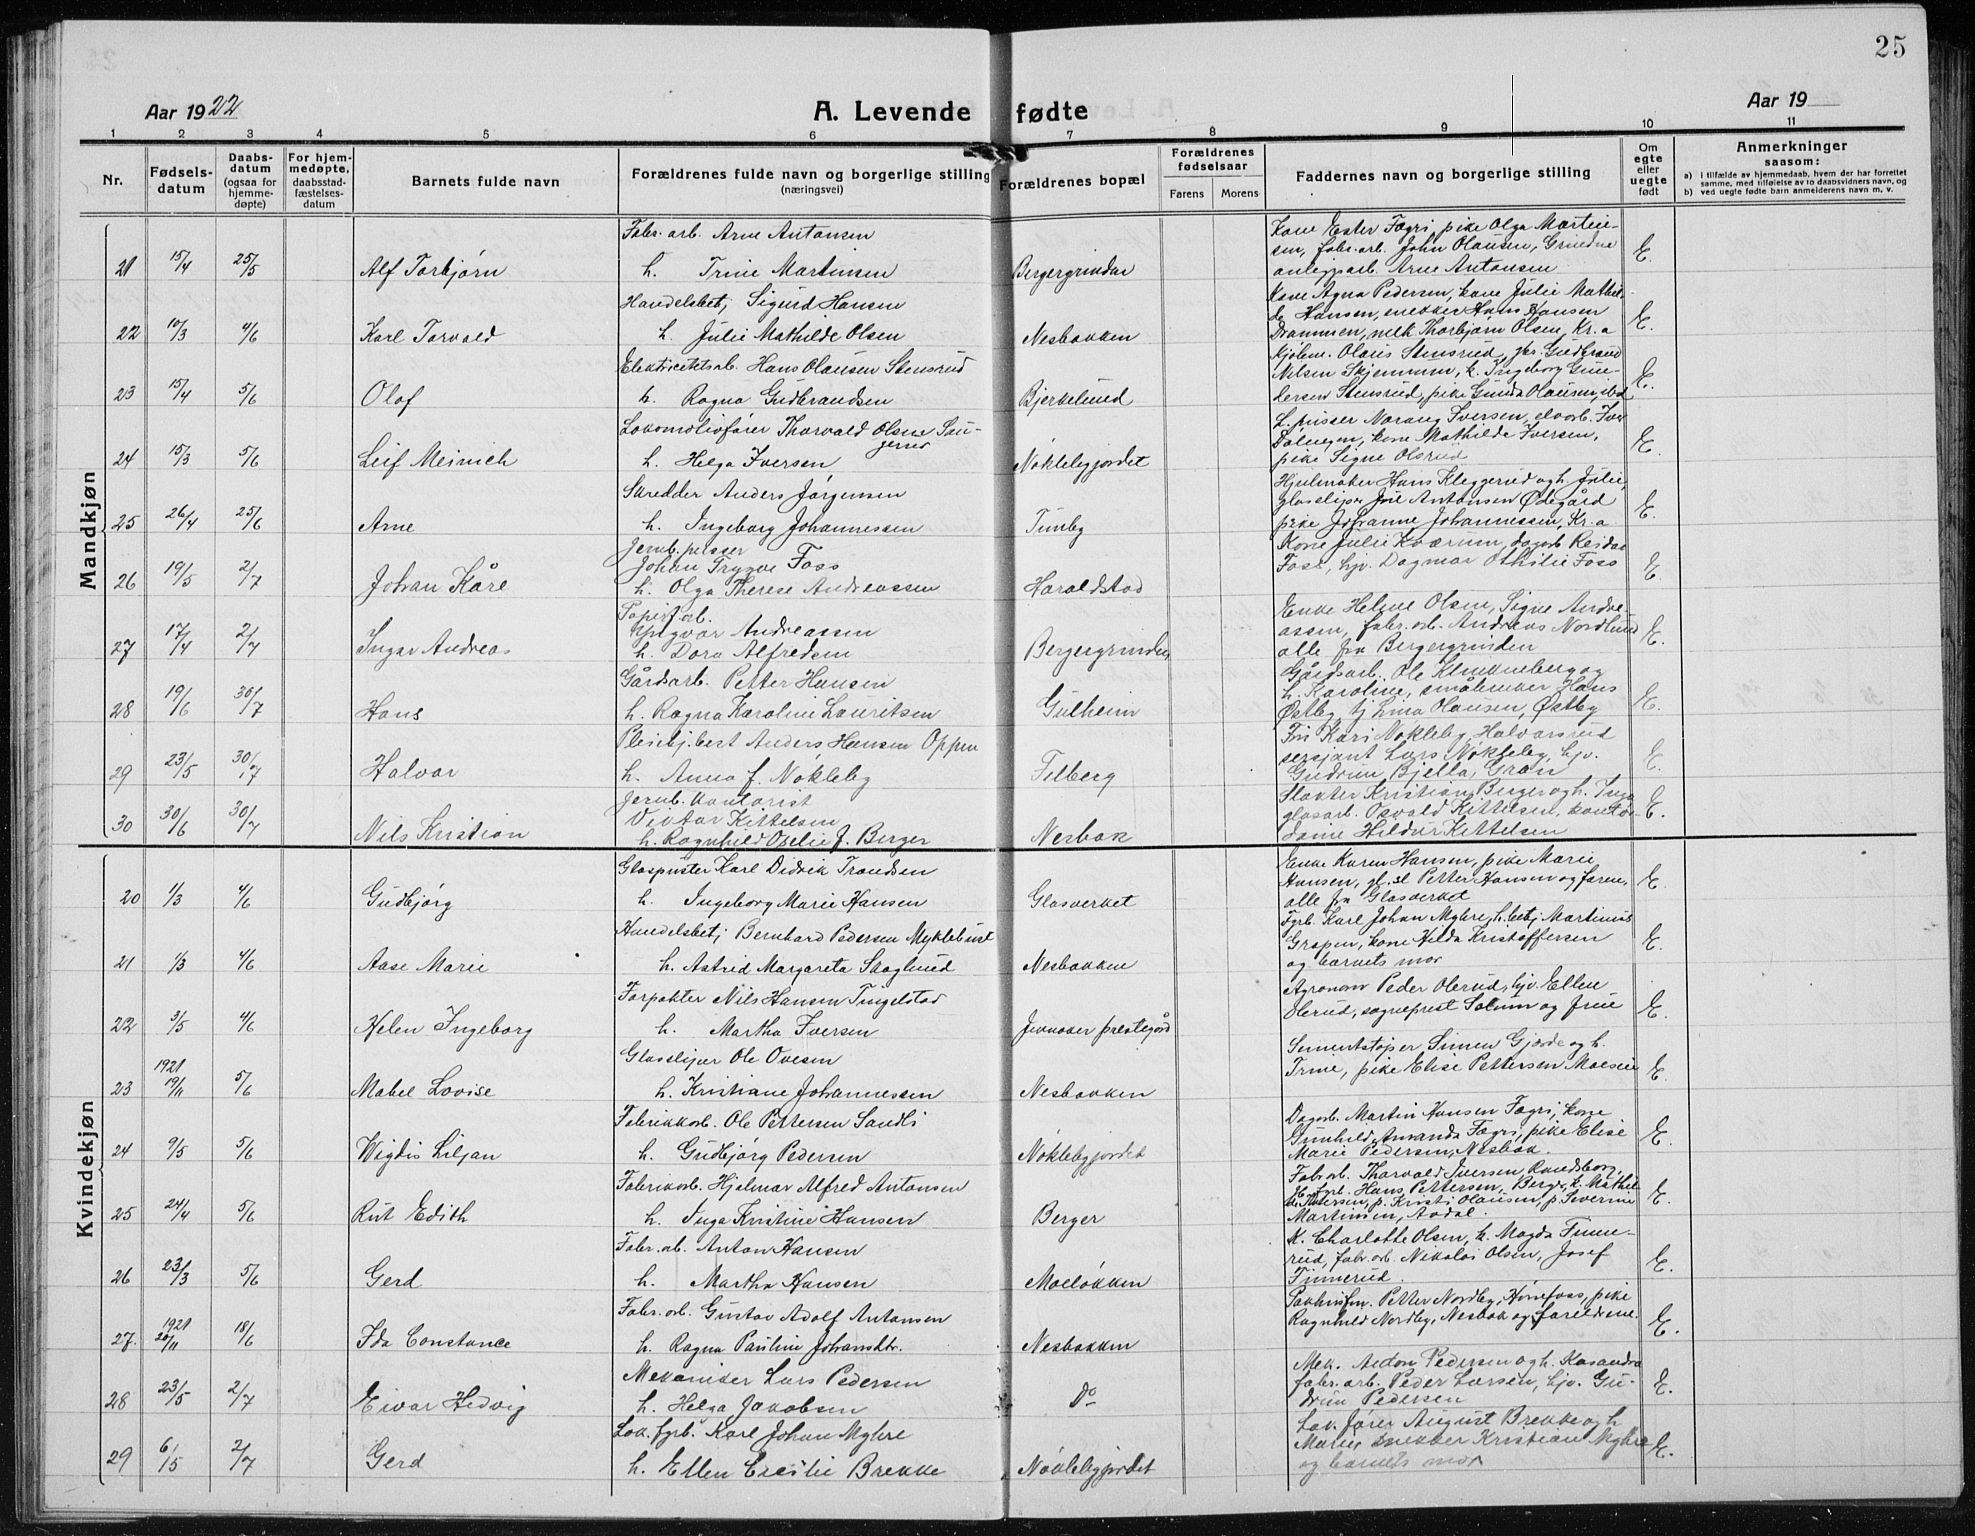 25
Aar 1922
A. Levende fødte
Aar 19
1 2 3 4 5 6 7 8 9 10 11
Nr.
Fødsels-
datum
Daabs-
datum
(ogsaa for
hjemme-
døpte)
For hjem-
medøpte,
daabsstad-
fæstelses-
datum
Barnets fulde navn
Forældrenes fulde navn og borgerlige stilling
(næringsvei)
Forældrenes bopæl
Forældrenes
fødselsaar
Farens Morens
Faddernes navn og borgerlige stilling
Om
egte
eller
uegte
født
Anmerkninger
saasom:
a) i tilfælde av hjemmedaab, hvem der har forrettet
samme, med tilføielse av to daabsvidners navn, og
b) ved uegte fødte barn anmelderens navn m. v.
Mandkjøn
21 15/4 25/5 Alf Torbjørn
Fabr. arb. Arne Antonsen
h. Trine Martinsen
Bergergrinden
Kone Ester Fagri, pike Olga Martin-
sen, fabr. arb. John Olausen, Grindne
anleggsarb. Arne Antonsen
E.
22 10/3 4/6 Karl Torvald
Handelsbetj. Sigurd Hansen
h. Julie Mathilde Olsen
Nesbakken
Kone Agna Pedersen, kone Julie Mathil-
de Hansen, snekker Hans Hansen
Drammen, melk Thorbjørn Olsen, Kr.a
E.
23 15/4 5/6 Olaf
Elektricitetsarb. Hans Olausen Stensrud
h. Ragna Gudbrandsen
Bjerkelund
Kjøbm. Olaus Stensrud, gbr. Gudbrand
Nilsen Skjemmen, k. Ingeborg Gun-
dersen Stensrud, pike Gunda Olausen, ibd
E.
24 15/3 5/6 Leif Meinich
Lokomotivfører Thorvald Olsen Sau-
gerud
h. Helga Iversen
Nøklebygjordet
L. pusser Narang Iversen, elvarb. Iver
Dalengen, kone Mathilde Iversen,
pike Signe Olsrud
E.
25 26/4 25/6 Arne
Skredder Anders Jørgensen
h. Ingeborg Johannessen
Tunby
Hjulmaker Hans Kleggerud og h. Julie,
glassliper Joh Antonsen Ødegård
pike Johanne Johannessen, Kr.a
E.
26 19/5 2/7 Johan Kåre
Jernb. pusser
Johan Trygve Foss
h. Olga Therese Andreassen
Haraldstad
Kone Julie Kværum, dagarb. Reidar
Foss, hjv. Dagmar Othilie Foss
E.
27 17/4 2/7 Ingar Andreas
Papirf. arb.
Yngvar Andreassen
h. Dora Alfredsen
Bergergrinden
Enke Helene Olsen, Signe Andre-
assen, fabr. arb. Andreas Nordlund
alle fra Bergergrinden
E.
28 19/6 30/7 Hans
Gårdsarb. Petter Hansen
h. Ragna Karoline Lauritsen
Gulheim
Gårdsarb. Ole Klinkenberg og
h. Karoline, småbruker Hans
Østby, tj. Lina Olausen, Østby
E.
29 23/5 30/7 Halvar
Pleiebj. best Anders Hansen Oppen
h. Anna f. Nøkleby
Tilberg
Fru Kari Nøkleby, Halvorsrud
sersjant Lars Nøkleby, hjv.
Gudrun Bjella, Gran
E.
30 30/6 30/7 Nils Kristian
Jernb. kontorist
Victor Kittelsen
h. Ragnhild Oselie f. Berger
Nesbak
Slakter Kristian Berger og h. Inga
glasarb. Osvald Kittelsen, kontor-
dame Hildur Kittelsen
E.
Kvindekjøn
20 1/3 4/6 Gudbjørg
Glaspuster Karl Didrik Trondsen
h. Ingeborg Marie Hansen
Glasverket
Enke Karen Hansen, pike Marie
Hansen, gl. sl Petter Hansen og faren,
alle fra Glasverket
E.
21 1/3 4/6 Aase Marie
Handelsbetj Bernhard Pedersen Myklebust
h. Astrid Margareta Skoglund
Nesbakken
Fyrb. Karl Johan Myhre, h. betj. Martinius
Grapen, kone Hilda Kristoffersen
og barnets mor
E.
22 3/5 4/6 Helen Ingeborg
Forpakter Nils Hansen Tingelstad
h. Martha Iversen
Jevnaker prestegård
Agronom Peder Olerud, hjv. Ellen
Olerud, sogneprest Solum og frue
E.
23 1921 19/11 5/6 Mabel Lovise
Glassliper Ole Ovesen
h. Kristiane Johannessen
Nesbakken
Sementstøper Simen Gjærde og h.
Trine, pike Elise Pettersen Moesen
E.
24 9/5 5/6 Wigdis Liljan
Fabrikkarb. Ole Pettersen Sandli
h. Gudbjørg Pedersen
Nøklebygjordet
Dagarb. Martin Hansen Fagri, kone
Gunhild Amanda Fagri, pike Elise
Marie Pedersen, Nesbak.
E.
25 24/4 5/6 Rut Edith
Fabrikarb. Hjalmar Alfred Antonsen
h. Inga Kristine Hansen
Berger
Fabr. arb. Thorvald Iversen, Randsborg,
fyrb. Hans Pettersen, Berger, k. Mathil-
de Pettersen, p. Kristi Olausen, p. Severine
Martinsen, Aadal.
E.
26 23/3 5/6 Gerd
Fabr. arb. Anton Hansen
h. Martha Hansen
Moeløkken
K. Charlotte Olsen, k. Magda Finne-
rud, fabr. arb. Nikolai Olsen, Josef
Finnerud.
E.
27. 1921 20/11 18/6 Ida Constance
Fabr. arb. Gustav Adolf Antonsen
h. Ragna Pauline Johansdtr.
Nesbakken
Pakhusfm. Petter Nordby, Hønefoss, pike
Ragnhild Nordby, Nesbak og foreldrene.
E.
28 23/5 2/7 Eivor Hedvig
Mekaniker Lars Pedersen
h. Helga Jakobsen
Do
Mek. Anton Pedersen og h. Kasandra
fabr. arb. Peder Larsen, hjv. Gu-
drun Pedersen
E.
29 6/5 2/7 Gerd
Lok. fyrb. Karl Johan Myhre
h. Ellen Cecilie Brekke
Nøklebygjordet
Lok. fører August Brekke og h
Marie, snekker Kristian Myhre
og barnets mor
E.